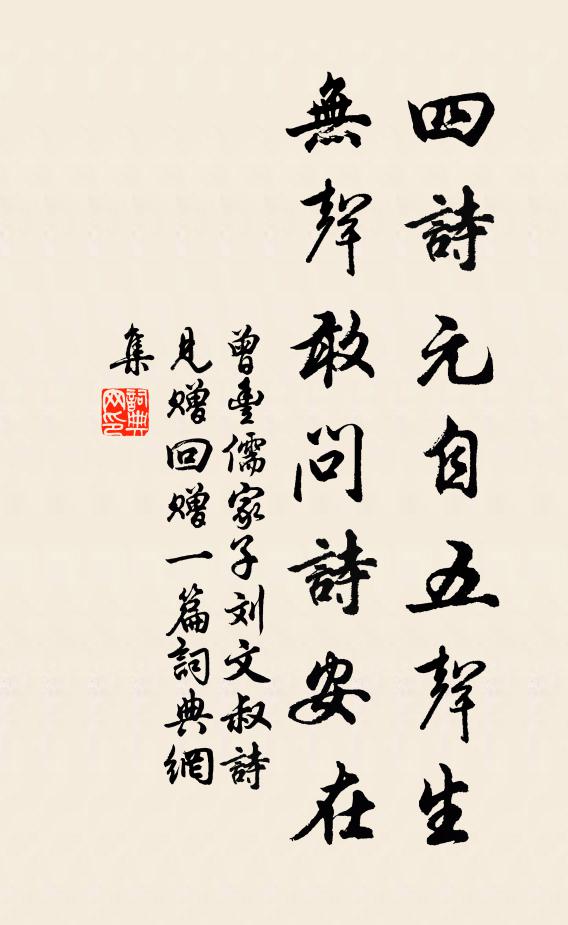 四詩元自五聲生
無聲敢問詩安在
曾豊儒家子刘文叔詩
見赠回赠一篇詞典網
集
詞典网印